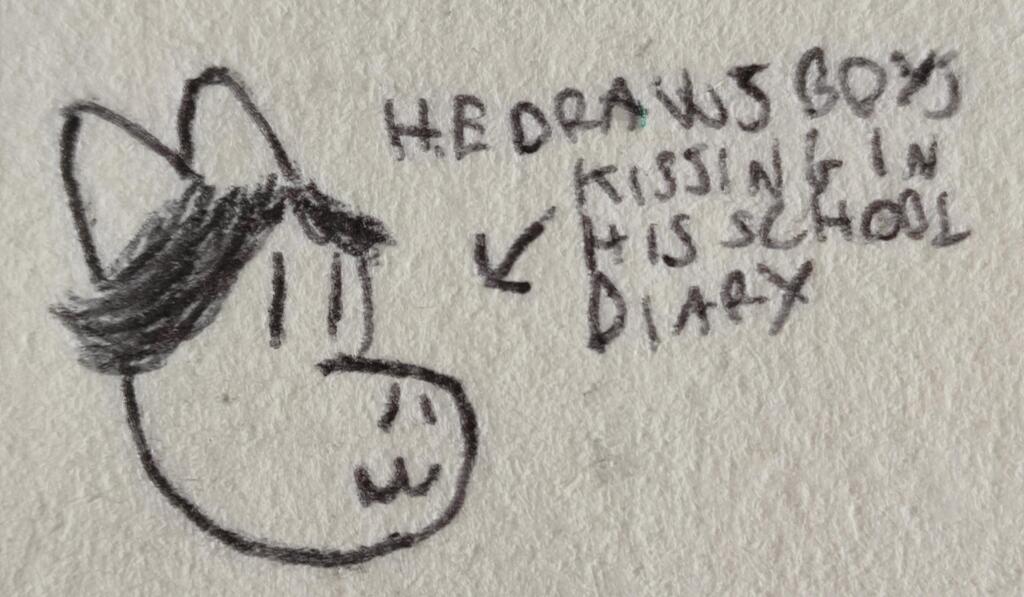 HE DRAWS BOYS
KISSING IN
HIS SCHOOL
DIARY